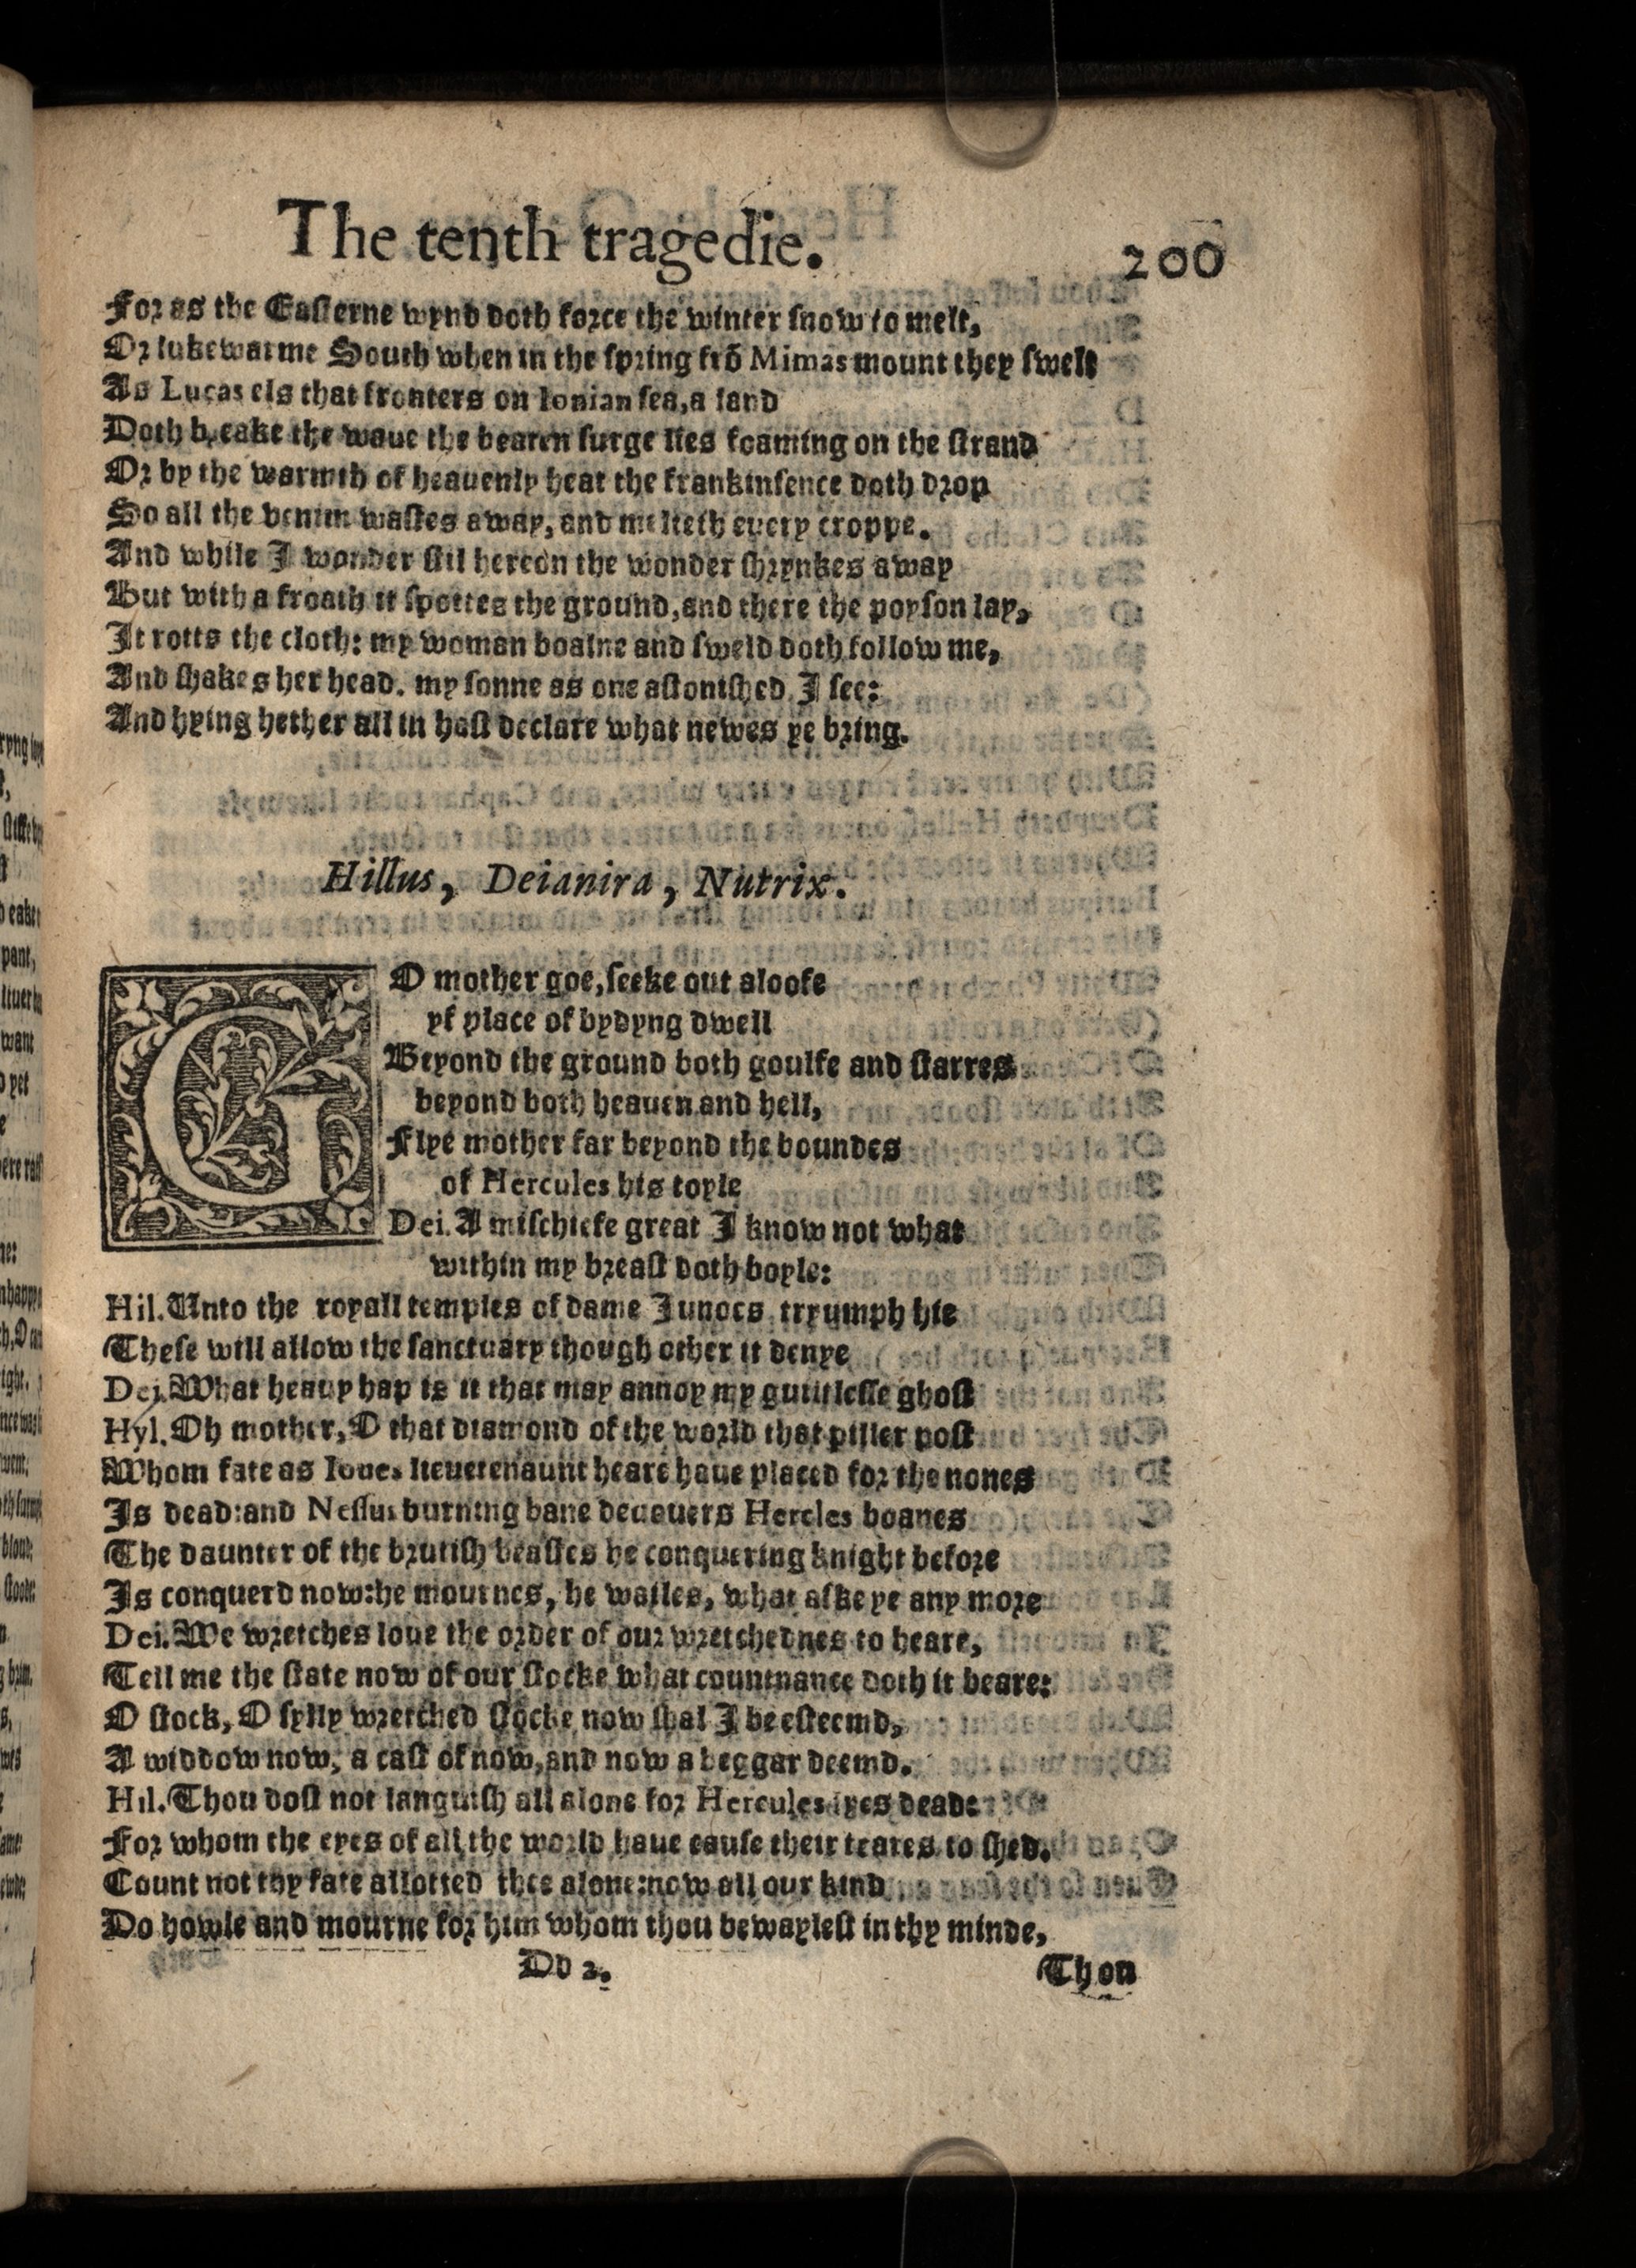 The tenth tragedie.
200
For as the Easterne wynd doth force the winter snow to melt,
Or lukewarme South when in the spring frō Mimas mount they swelt
As Lucas els that fronters on Ionian sea, a land
Doth breake the waue the bearen surge lies foaming on the strand
Or by the warmth of heauenly heat the frankinsence doth drop
So all the venim wastes away, and melteth euery croppe.
And while I wonder stil hereon the wonder shrynkes away
But with a froath it spottes the ground, and there the poyson lay,
It rotts the cloth: my woman boalne and sweld doth follow me,
And shakes her head. my sonne as one astonished I see:
And hying hether all in hast declare what newes ye bring.
Hillus, Deianira, Nutrix.
GO mother goe, seeke out aloofe
yf place of bydyng dwell
Beyond the ground both goulfe and starres
beyond both heauen and hell,
Flye mother far beyond the boundes
of Hercules his toyle
Dei. A mischiefe great I know not what
within my breast doth boyle:
Hil. Unto the royall temples of dame Iunoes tryumph hie
These will allow the sanctuary though other it denye
Dei. What heauy hap is it that may annoy my guiltlesse ghost
Hyl. Oh mother, O that diamond of the world that piller post
Whom fate as Ioues lieuetenaunt heare haue placed for the nones
Is dead: and Nessus burning bane deuouers Hercles boanes
The daunter of the brutish beastes he conquering knight before
Is conquerd now: he mournes, he wailes, what aske ye any more
Dei. We wretches loue the order of our wretchednes to heare,
Tell me the state now of our stocke what countnance doth it beare:
O stock, O sylly wretched stocke now shal I be esteemd,
A widdow now, a cast of now, and now a beggar deemd.
Hil. Thou dost not languish all alone for Hercules lyes deade
For whom the eyes of all the world haue cause their teares to shed.
Count not thy fate allotted thee alone: now all our kind
Do howle and mourne for him whom thou bewaylest in thy minde,
Dd 2.
Thou